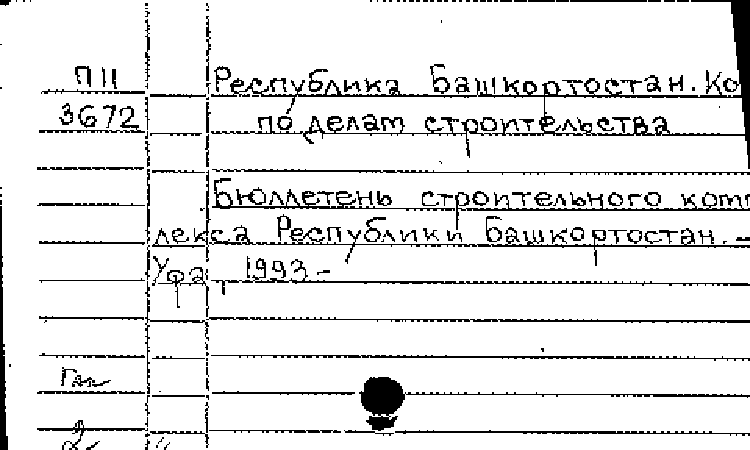 П11 Республика Башкортостан. Ко
3672 по делам строительства
Бюллетень строительного комп
лекса Республики Башкортостан. -
Уфа, 1993 -